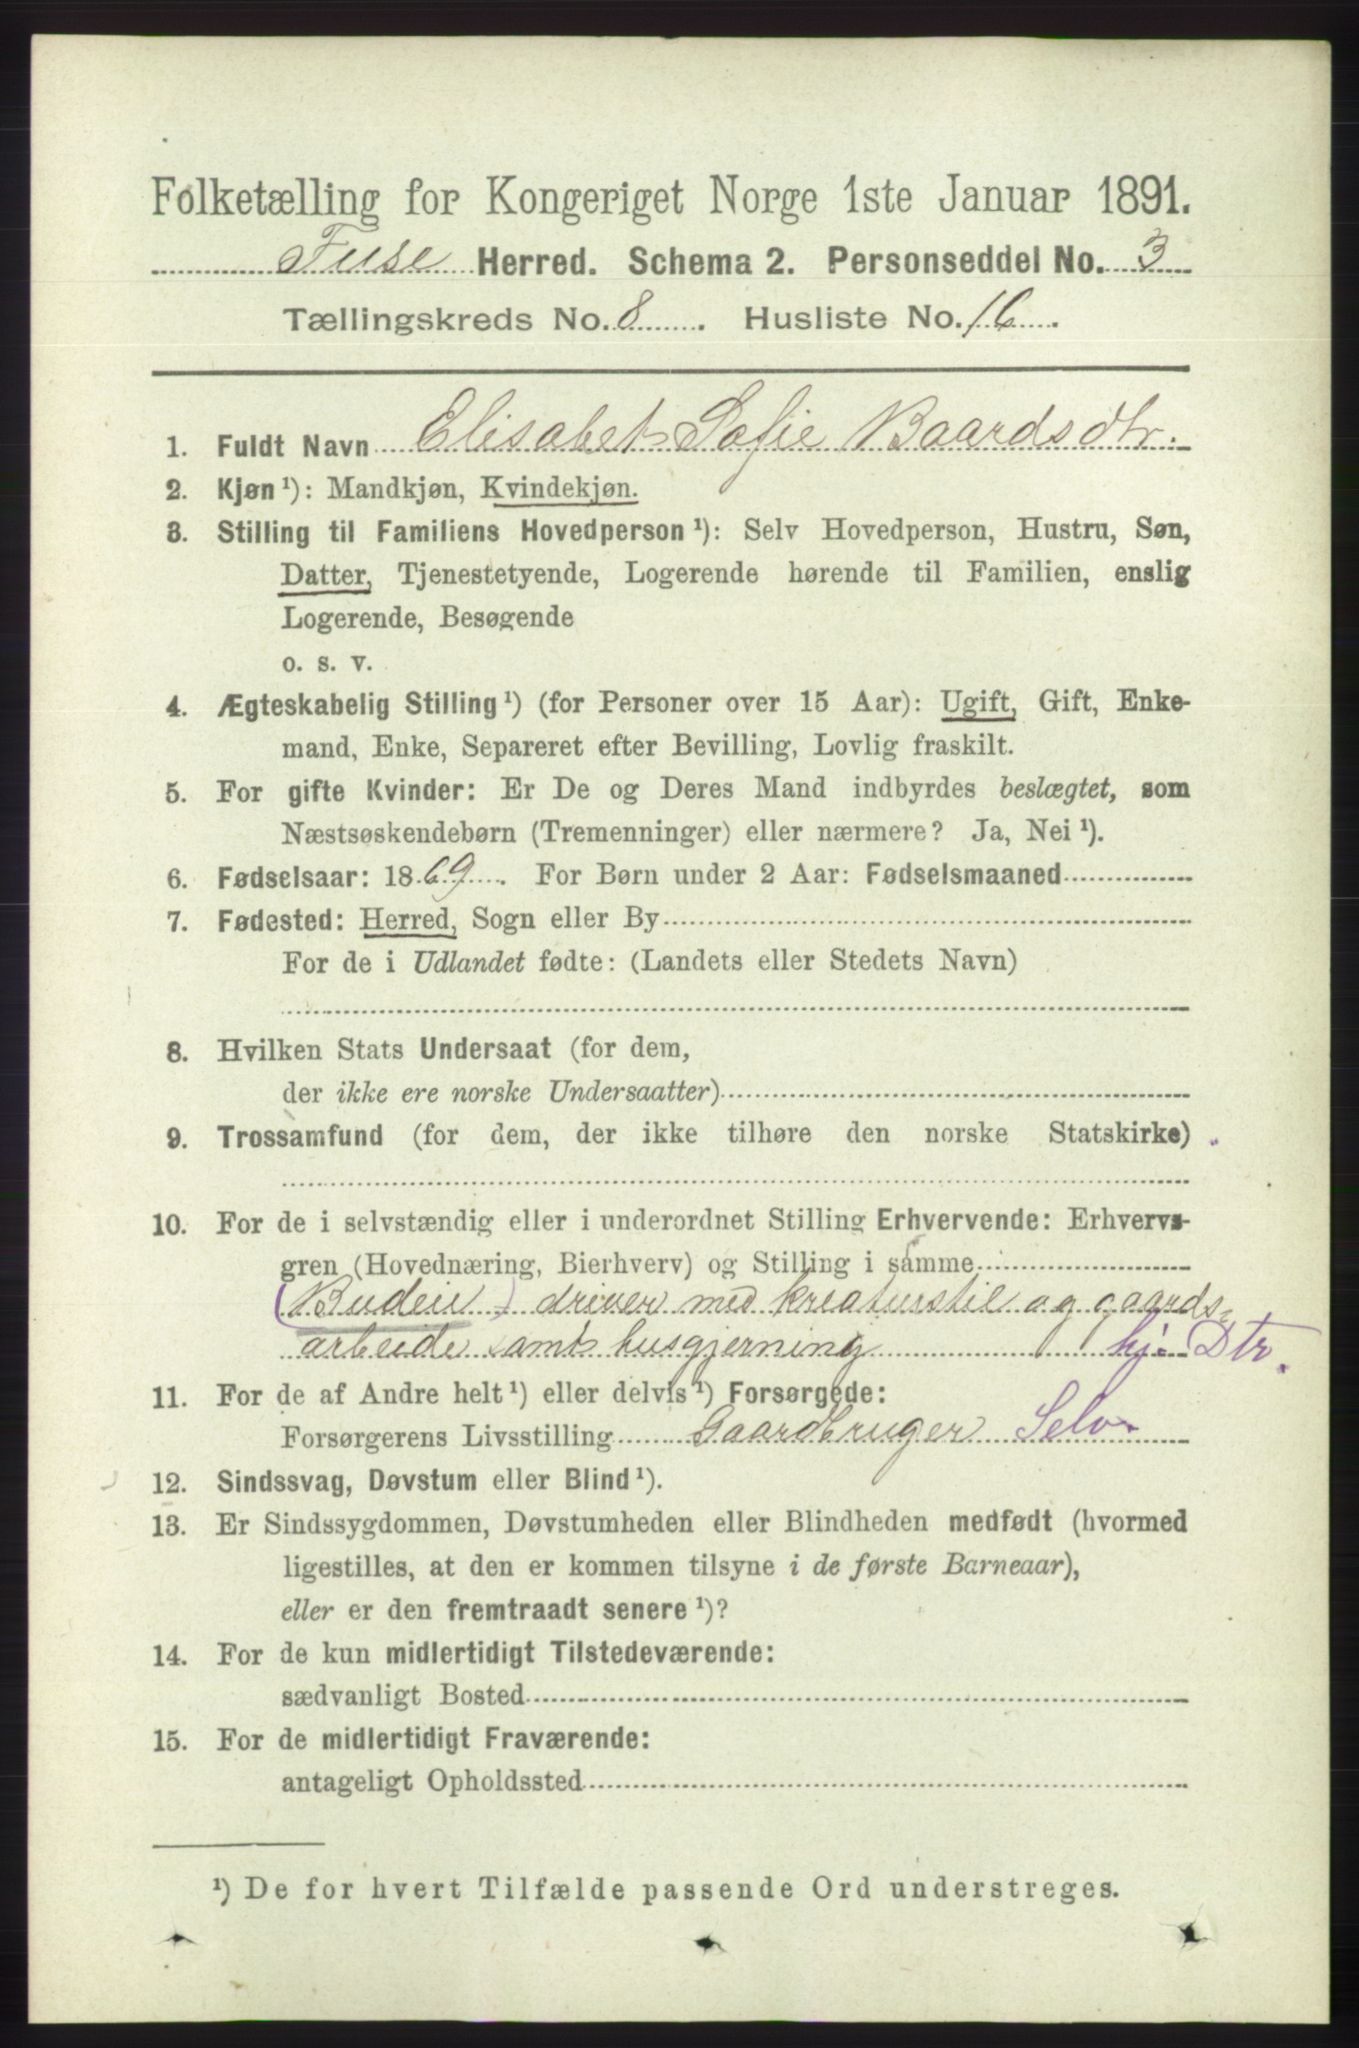 Folketælling for Kongeriget Norge 1ste Januar 1891.
Fuse Herred. Schema 2. Personseddel No. 3
Tællingskreds No. 8 . Husliste No. 16 .
1. Fuldt Navn Elisabet Sofie Baardsdtr.
2. Kjøn ¹): Mandkjøn, Kvindekjøn.
3. Stilling til Familiens Hovedperson ¹): Selv Hovedperson, Hustru, Søn,
Datter, Tjenestetyende, Logerende hørende til Familien, enslig
Logerende, Besøgende
o. s. v.
4. Ægteskabelig Stilling ¹) (for Personer over 15 Aar): Ugift, Gift, Enke-
mand, Enke, Separeret efter Bevilling, Lovlig fraskilt.
5. For gifte Kvinder: Er De og Deres Mand indbyrdes beslægtet, som
Næstsøskendebørn (Tremenninger) eller nærmere? Ja, Nei ¹).
6. Fødselsaar: 1869 . For Børn under 2 Aar: Fødselsmaaned
7. Fødested: Herred, Sogn eller By
For de i Udlandet fødte: (Landets eller Stedets Navn)
8. Hvilken Stats Undersaat (for dem,
der ikke ere norske Undersaatter)
9. Trossamfund (for dem, der ikke tilhøre den norske Statskirke)
10. For de i selvstændig eller i underordnet Stilling Erhvervende: Erhvervs-
gren (Hovednæring, Bierhverv) og Stilling i samme
(Budeie) driver med kreaturstil og gaards-
arbeide samt husgjerning hj. Dtr.
11. For de af Andre helt ¹) eller delvis ¹) Forsørgede:
Forsørgerens Livsstilling Gaardbruger Selv
12. Sindssvag, Døvstum eller Blind ¹).
13. Er Sindssygdommen, Døvstumheden eller Blindheden medfødt (hvormed
ligestilles, at den er kommen tilsyne i de første Barneaar),
eller er den fremtraadt senere ¹)?
14. For de kun midlertidigt Tilstedeværende:
sædvanligt Bosted
15. For de midlertidigt Fraværende:
antageligt Opholdssted
¹) De for hvert Tilfælde passende Ord understreges.